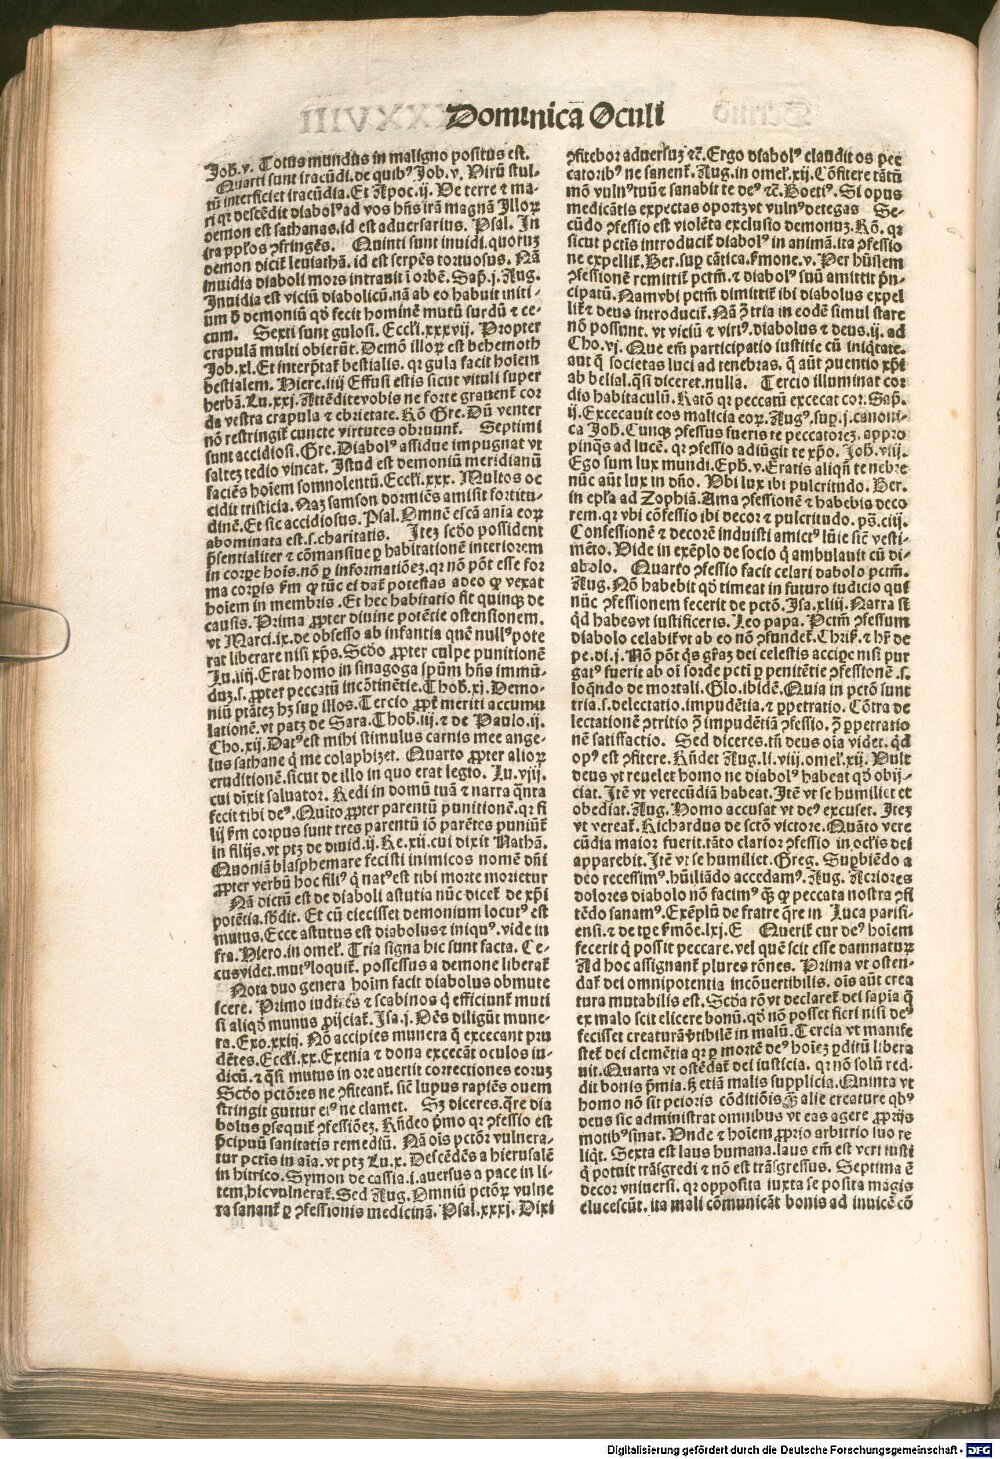 Dominica Oculi
Joh̄. v. Totus mundus in maligno positus est.
Quarti sunt iracūdi. de quibꝰ Job. v. Virū stul-
tū interficiet iracūdia. Et Apoc. ij. Ve terre ⁊ ma-
ri qꝛ descēdit diabolꝰ ad vos hn̄s irā magnā Illoꝝ
demon est sathanas. id est aduersarius. Psal. In
ira pp̄los ꝯfringēs. Quinti sunt inuidi. quoruꝫ
demon dicit̄ leuiathā. id est serpēs tortuosus. Nā
inuidia diaboli mors intrauit ī orbē. Sap̄. j. Aug.
Inuidia est viciū diabolicū. nā ab eo habuit initi-
um d̄ demoniū qḋ fecit hominē mutū surdū ⁊ ce-
cum. Sexti sunt gulosi. Eccl̄i. xxxvij. Propter
crapulā multi obierūt. Demō illoꝝ est behemoth
Job. xl. Et interp̄tat̄ bestialis. qꝛ gula facit hoīem
bestialem. Hiere. iiij Effusi estis sicut vituli super
herbā. Lu. xxj. Attēdite vobis ne forte grauent̄ cor
da vestra crapula ⁊ ebrietate. Rō Gre. Dū venter
nō restringit̄ cuncte virtutes obruunt̄. Septimi
sunt accidiosi. Gre. Diabolꝰ assidue impugnat vt
salteꝫ tedio vincat. Istud est demoniū meridianū
faciēs hoīem somnolentū. Eccl̄i. xxx. Multos oc
cidit tristicia. Naꝫ samson dormiēs amisit fortitu-
dinē. Et sic accidiosus. Psal. Omnē escā aīa eoꝝ
abominata est. s. charitatis. Iteꝫ scḋo possident
p̄sentialiter ⁊ cōmansiue ꝑ habitationē interiorem
in corpe hoīs. nō ꝑ informatiōeꝫ. qꝛ nō pōt esse for
ma corpis ẜm ꝙ tūc ei dat̄ potestas adeo ꝙ vexat
hoīem in membris. Et hec habitatio fit quinqꝫ de
causis. Prima ꝓpter diuine potētie ostensionem.
vt Marci. ix. de obsesso ab infantia quē nullꝰ pote
rat liberare nisi xp̄s. Scḋo ꝓpter culpe punitionē
Lu. iiij. Erat homo in sinagoga sp̄um hn̄s immū-
duꝫ. s. ꝓpter peccatū incōtinētie. Thob. xj. Demo-
niū ptātēꝫ hꝫ suꝑ illos. Tercio ꝓpt̄ meriti accumu
lationē. vt patꝫ de Sara. Thob. iij. ⁊ de Paulo. ij.
Cho. xij. Datꝰ est mihi stimulus carnis mee ange-
lus sathane q̇ me colaphizet. Quarto ꝓpter alioꝝ
eruditionē. sicut de illo in quo erat legio. Lu. viij.
cui dixit saluator. Redi in domū tuā ⁊ narra qn̄ta
fecit tibi deꝰ. Quīto ꝓpter parentū punitionē. qꝛ fi
lij ẜm corpus sunt tres parentū iō parētes puniūt̄
in filijs. vt ptꝫ de dauid. ij. Re. xii. cui dixit Nathā.
Quoniā blasphemare fecisti inimicos nomē dn̄i
ꝓpter verbū hoc filiꝰ q̇ natꝰ est tibi morte morietur
Nā dictū est de diaboli astutia nūc dicet̄ de xp̄i
potētia. sb̄dit. Et cū eiecisset demonium locutꝰ est
mutus. Ecce astutus est diabolus ⁊ iniquꝰ. vide in
fra. Hiero. in omel̄. Tria signa hic sunt facta. Ce-
cus videt. mutꝰ loquit̄. possessus a demone liberat̄
Nota duo genera hoīm facit diabolus obmute
scere. Primo iudices ⁊ scabinos q̇ efficiunt̄ muti
si aliqḋ munus ꝓijciat̄. Isa. j. Oēs diligūt mune-
ra. Exo. xxiij. Nō accipies munera q̄ excecant pru
dētes. Eccl̄i. xx. Exenia ⁊ dona excecāt oculos iu-
dicū. ⁊ q̄si mutus in ore auertit correctiones eoruꝫ
Scḋo pctōres ne ꝯfiteant̄. sic̄ lupus rapiēs ouem
stringit guttur eiꝰ ne clamet. Sꝫ diceres. q̄re dia
bolus ꝑsequit̄ ꝯfessiōeꝫ. Rn̄deo p̄mo qꝛ ꝯfessio est
p̄cipuū sanitatis remediū. Nā oīs pctōr vulnera-
tur pctīs in aīa. vt ptꝫ Lu. x. Descēdēs a hierusalē
in hitrico. Symon de cassia. i. auersus a pace in li-
tem. hic vulnerat̄. Sed Aug. Omniū pctōꝝ vulne
ra sanant̄ ꝑ ꝯfessionis medicinā. Psal. xxxj. Dixi
ꝯfitebor aduersuꝫ ⁊c̄. Ergo diabolꝰ claudit os pec
catoribꝰ ne sanent̄. Aug. in omel̄. xij. Cōfitere tātū
mō vulnꝰ tuū ⁊ sanabit te deꝰ ⁊c̄. Boetiꝰ. Si opus
medicātis expectas oportꝫ vt vulnꝰ detegas Se-
cūdo ꝯfessio est violēta exclusio demonuꝫ. Rō. qꝛ
sicut pctīs introducit̄ diabolꝰ in animā. ita ꝯfessio
ne expellit̄. Ber. suꝑ cātica. ẜmone. v. Per hūilem
ꝯfessionē remittit̄ pctm̄. ⁊ diabolꝰ suū amittit p̄n-
cipatū. Nam vbi pctm̄ dimittit̄ ibi diabolus expel
lit̄ ⁊ deus introducit̄. Nā ꝯ̄tria in eodē simul stare
nō possunt. vt viciū ⁊ virtꝰ. diabolus ⁊ deus. ij. ad
Cho. vj. Que em̄ participatio iustitie cū iniq̇tate.
aut q̄ societas luci ad tenebras. q̄ aūt ꝯuentio xp̄i
ab belial. q̄si diceret. nulla. Tercio illuminat cor
dis habitaculū. Ratō qꝛ peccatū excecat cor. Sap̄.
ij. Excecauit eos malicia eoꝝ. Augꝰ. suꝑ. j. canoni-
ca Joh̄. Cunqꝫ ꝯfessus fueris te peccatoreꝫ. appro
pinq̄s ad lucē. qꝛ ꝯfessio adiūgit te xp̄o. Joh̄. viij.
Ego sum lux mundi. Eph̄. v. Eratis aliqn̄ tenebre
nūc aūt lux in dn̄o. Vbi lux ibi pulcritudo. Ber.
in epl̄a ad Zophiā. Ama ꝯfessionē ⁊ habebis deco
rem. qꝛ vbi cōfessio ibi decor ⁊ pulcritudo. ps̄. ciij.
Confessionē ⁊ decorē induisti amictꝰ lūie sic̄ vesti-
mēto. Vide in exēplo de socio q̇ ambulauit cū di-
abolo. Quarto ꝯfessio facit celari dabolo pctm̄.
Aug. Nō habebit qḋ timeat in futuro iudicio qui
nūc ꝯfessionem fecerit de pctō. Isa. xliij. Narra si
qḋ habes vt iustificeris. Leo papa. Pctm̄ ꝯfessum
diabolo celabit̄ vt ab eo nō ꝯfundet̄. Chriſ. ⁊ hr̄ de
pe. di. j. Nō pōt q̇s gr̄aꝫ dei celestis accipe nisi pur
gatꝰ fuerit ab oī sorde pcti ꝑ penitētie ꝯfessionē. s.
loq̄ndo de mortali. Glo. ibidē. Quia in pctō sunt
tria. s. delectatio. impudētia. ⁊ ꝑpetratio. Cōtra de
lectationē ꝯtritio ꝯ̄ impudētiā ꝯfessio. ꝯ̄ ꝑpetratio
nē satisfactio. Sed diceres. tn̄ deus oīa videt. qḋ
opꝰ est ꝯfitere. Rn̄det Aug. li. viij. omel̄. xij. Vult
deus vt reuelet homo ne diabolꝰ habeat qḋ obij-
ciat. Itē vt verecūdiā habeat. Itē vt se humiliet et
obediat. Aug. Homo accusat vt deꝰ excuset. Iteꝫ
vt vereat̄. Richardus de sctō victore. Quāto vere
cūdia maior fuerit. tāto clarior ꝯfessio in ocl̄is dei
apparebit. Itē vt se humiliet. Greg. Suꝑbiēdo a
deo recessimꝰ. hūiliādo accedamꝰ. Aug. Acriores
dolores diabolo nō facimꝰ qꝫ̄ ꝙ peccata nostra ꝯfi
tēdo sanamꝰ. Exēplū de fratre q̄re in Luca parisi-
ensi. ⁊ de tꝑe ẜmōe. lxj. E Querit̄ cur deꝰ hoīem
fecerit q̇ possit peccare. vel quē scit esse damnatuꝝ
Ad hoc assignant̄ plures rōnes. Prima vt osten-
dat̄ dei omnipotentia incōuertibilis. oīs aūt crea
tura mutabilis est. Scḋa rō vt declaret̄ dei sapīa q̄
ex malo scit elicere bonū. qḋ nō posset fieri nisi deꝰ
fecisset creaturā v̄tibilē in malū. Tercia vt manife
stet̄ dei clemētia qꝛ ꝑ mortē deꝰ hoīeꝫ ꝑditū libera
uit. Quarta vt ostēdat̄ dei iusticia. qꝛ nō solū red-
dit bonis p̄mia. sꝫ etiā malis supplicia. Quinta vt
homo nō sit peioris cōditiōis alie creature qḃꝰ
deus sic administrat omnibus vt eas agere ꝓprijs
motibꝰ sinat. Unde ⁊ hoīem ꝓprio arbitrio suo re
liq̇t. Sexta est laus humana. laus em̄ est veri iusti
q̇ potuit trāsgredi ⁊ nō est trāsgressus. Septima ē
decor vniuersi. qꝛ opposita iuxta se posita magis
elucescūt. ita mali cōmunicāt bonis ad inuicē cō
Digitalisierung gefördert durch die Deutsche Forschungsgemeinschaft - DFG